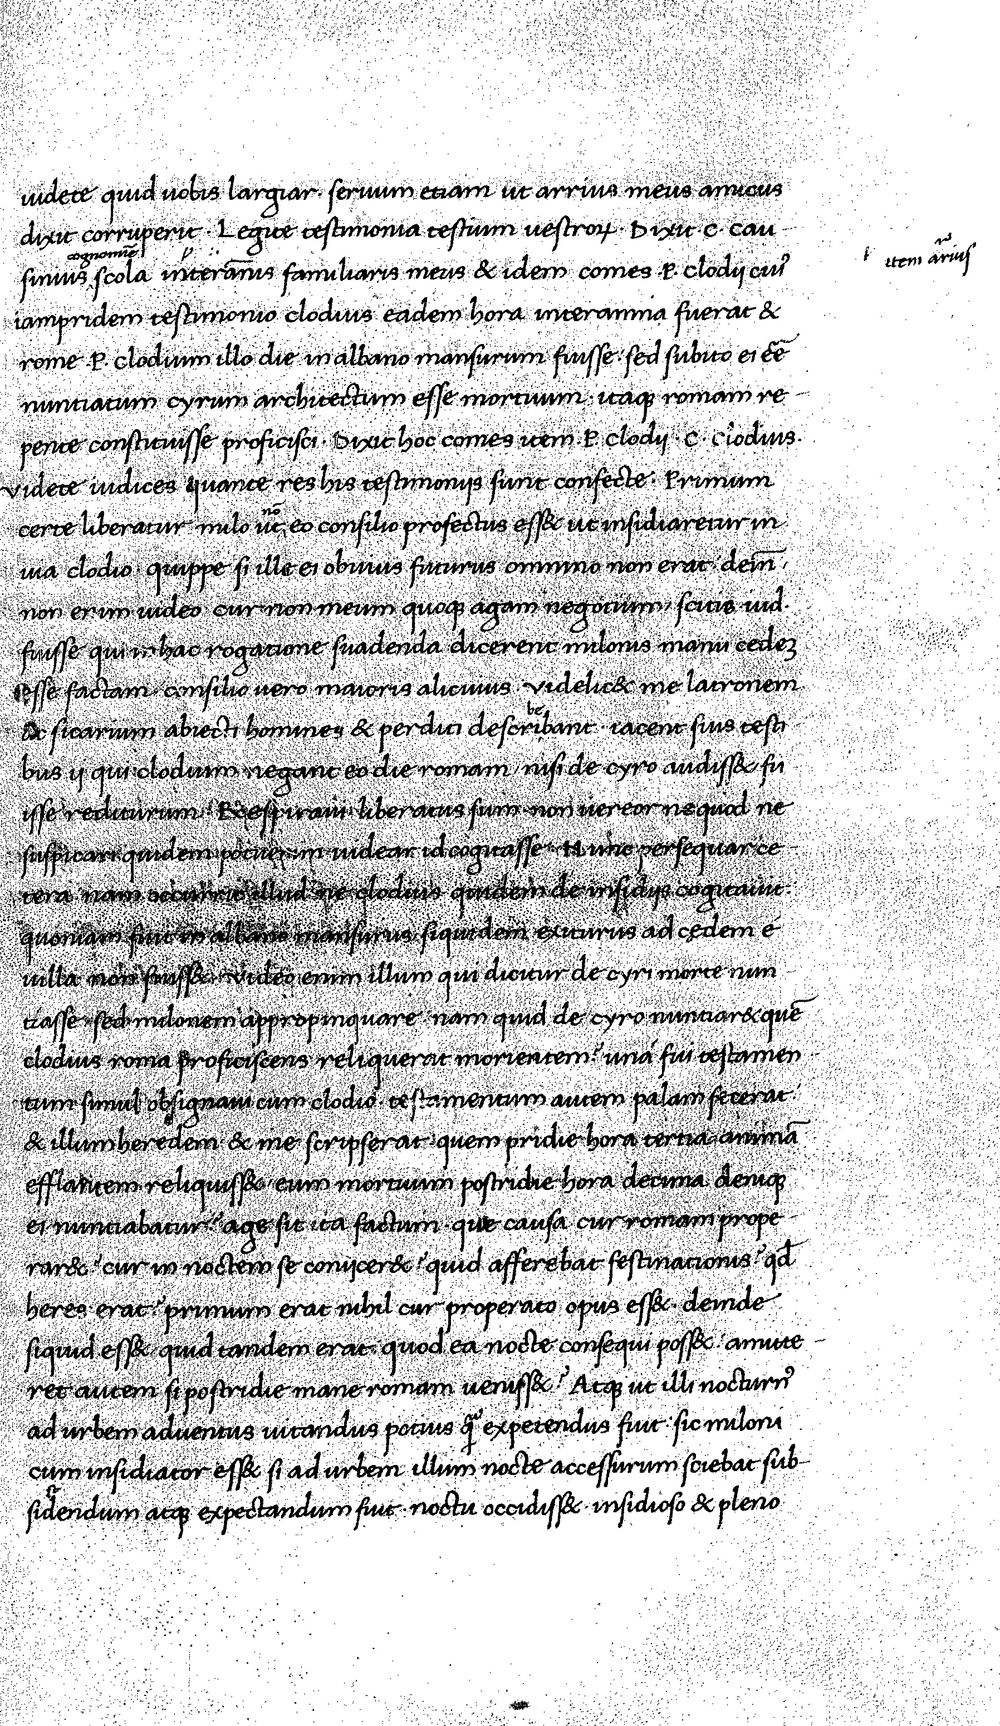 uidete quid uobis largiar· seruum etiam ut arrius meus amicus
dixit corruperit· Legite testimonia testium uestroꝝ· Dixit C· Cau-
cognomīe
sinius scola interam̄nus familiaris meus & idem comes P. clodij cuiꝰ
item arius
iampridem testimonio clodius eadem hora interamna fuerat &
rome P. clodium illo die in albano mansurum fuisse· sed subito ei eē
nuntiatum cyrum architectum esse mortuum· itaqꝫ romam re-
pente constituisse proficisci· Dixit hoc comes item P. clodij· C· clodius·
videte iudices quante res his testimonijs sunt confecte· Primum
certe liberatur milo nō ut eo consilio profectus ess& ut insidiaretur in
uia clodio· quippe si ille ei obuius futurus omnino non erat· dein̄
non enim uideo cur non meum quoqꝫ agam negotium, scitis iud·
fuisse qui in hac rogatione suadenda dicerent milonis manu cedeꝫ
esse factam· consilio uero maioris alicuius· videlic& me latronem
ac sicarium abiecti homines & perditi describant be· iacent suis testi
bus ij qui clodium negant eo die romam, nisi de cyro audiss& fu
isse rediturum· Respiraui liberatus sum· non uereor ne quod ne
suspicari quidem potuerim uidear id cogitasse· Nunc persequar ce-
tera· nam occurrit illud ne clodius quidem de insidijs cogitauit·
quoniam fuit in albano mansurus, siquidem exiturus ad cędem e
uilla non fuiss&· Video enim illum qui dicitur de cyri morte nun-
tiasse· sed milonem appropinquare· nam quid de cyro nuntiar& quē
clodius roma proficiscens reliquerat morientem? una fui testamen-
tum simul obsignaui cum clodio· testamentum autem palam fecerat·
& illum heredem & me scripserat· quem pridie hora tertia animā
efflantem reliquiss&· eum mortuum postridie hora decima deniqꝫ
ei nuntiabatur? age sit ita factum· que causa cur romam prope-
rar&? cur in noctem se conijcer&? quid afferebat festinationis? qđ
heres erat? primum erat nihil cur properato opus ess&· deinde
siquid ess&· quid tandem erat· quod ea nocte consequi poss&· amitte-
ret autem si postridie mane romam ueniss&? Atqꝫ ut illi nocturnꝰ
ad urbem aduentus uitandus potius q̄ expetendus fuit· sic miloni
cum insidiator ess& si ad urbem illum nocte accessurum sciebat sub-
sidendum atqꝫ expectandum fuit· noctu occidiss&· insidioso & pleno